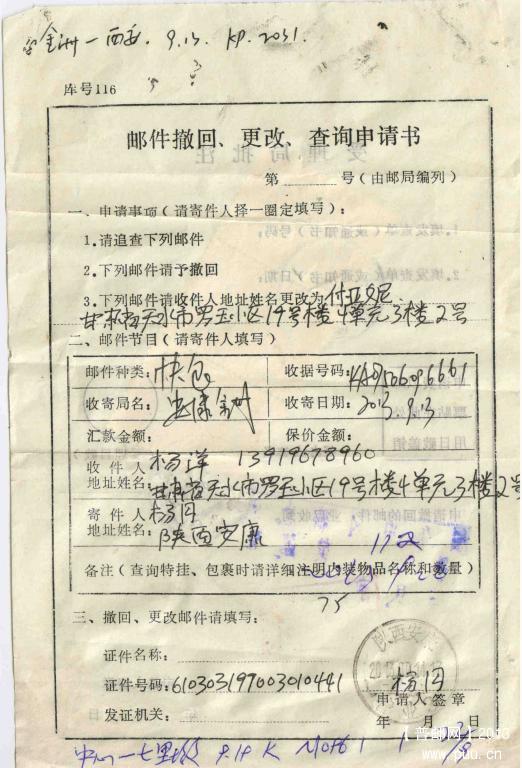 金州一西安. 9.13. KP. 2031.
库号116
邮件撤回、更改、查询申请书
第 号(由邮局编列)
一、申请事项(请寄件人择一圈定填写):
1.请追查下列邮件
2.下列邮件请予撤回
3.下列邮件请收件人地址姓名更改为
甘肃省天水市罗玉小区19号楼4单元3楼2号
二、邮件节目(请寄件人填写)
邮件种类:快包 收据号码:
收寄局名:安康金州 收寄日期:2013.9.13
汇款金额: 保价金额:
收件人地址姓名:杨洋 13919678960
甘肃省天水市罗玉小区19号楼4单元3楼2号
寄件人地址姓名:杨丹
陕西安康
备注(查询特挂、包裹时请详细注明内装物品名称和数量)
75
三、撤回、更改邮件请填写:
证件名称:
证件号码:610303197003010441 杨丹
申请人签章
日发证机关: 年 月 日
中心一七里段
[普邮网]2013
www.puu.cn